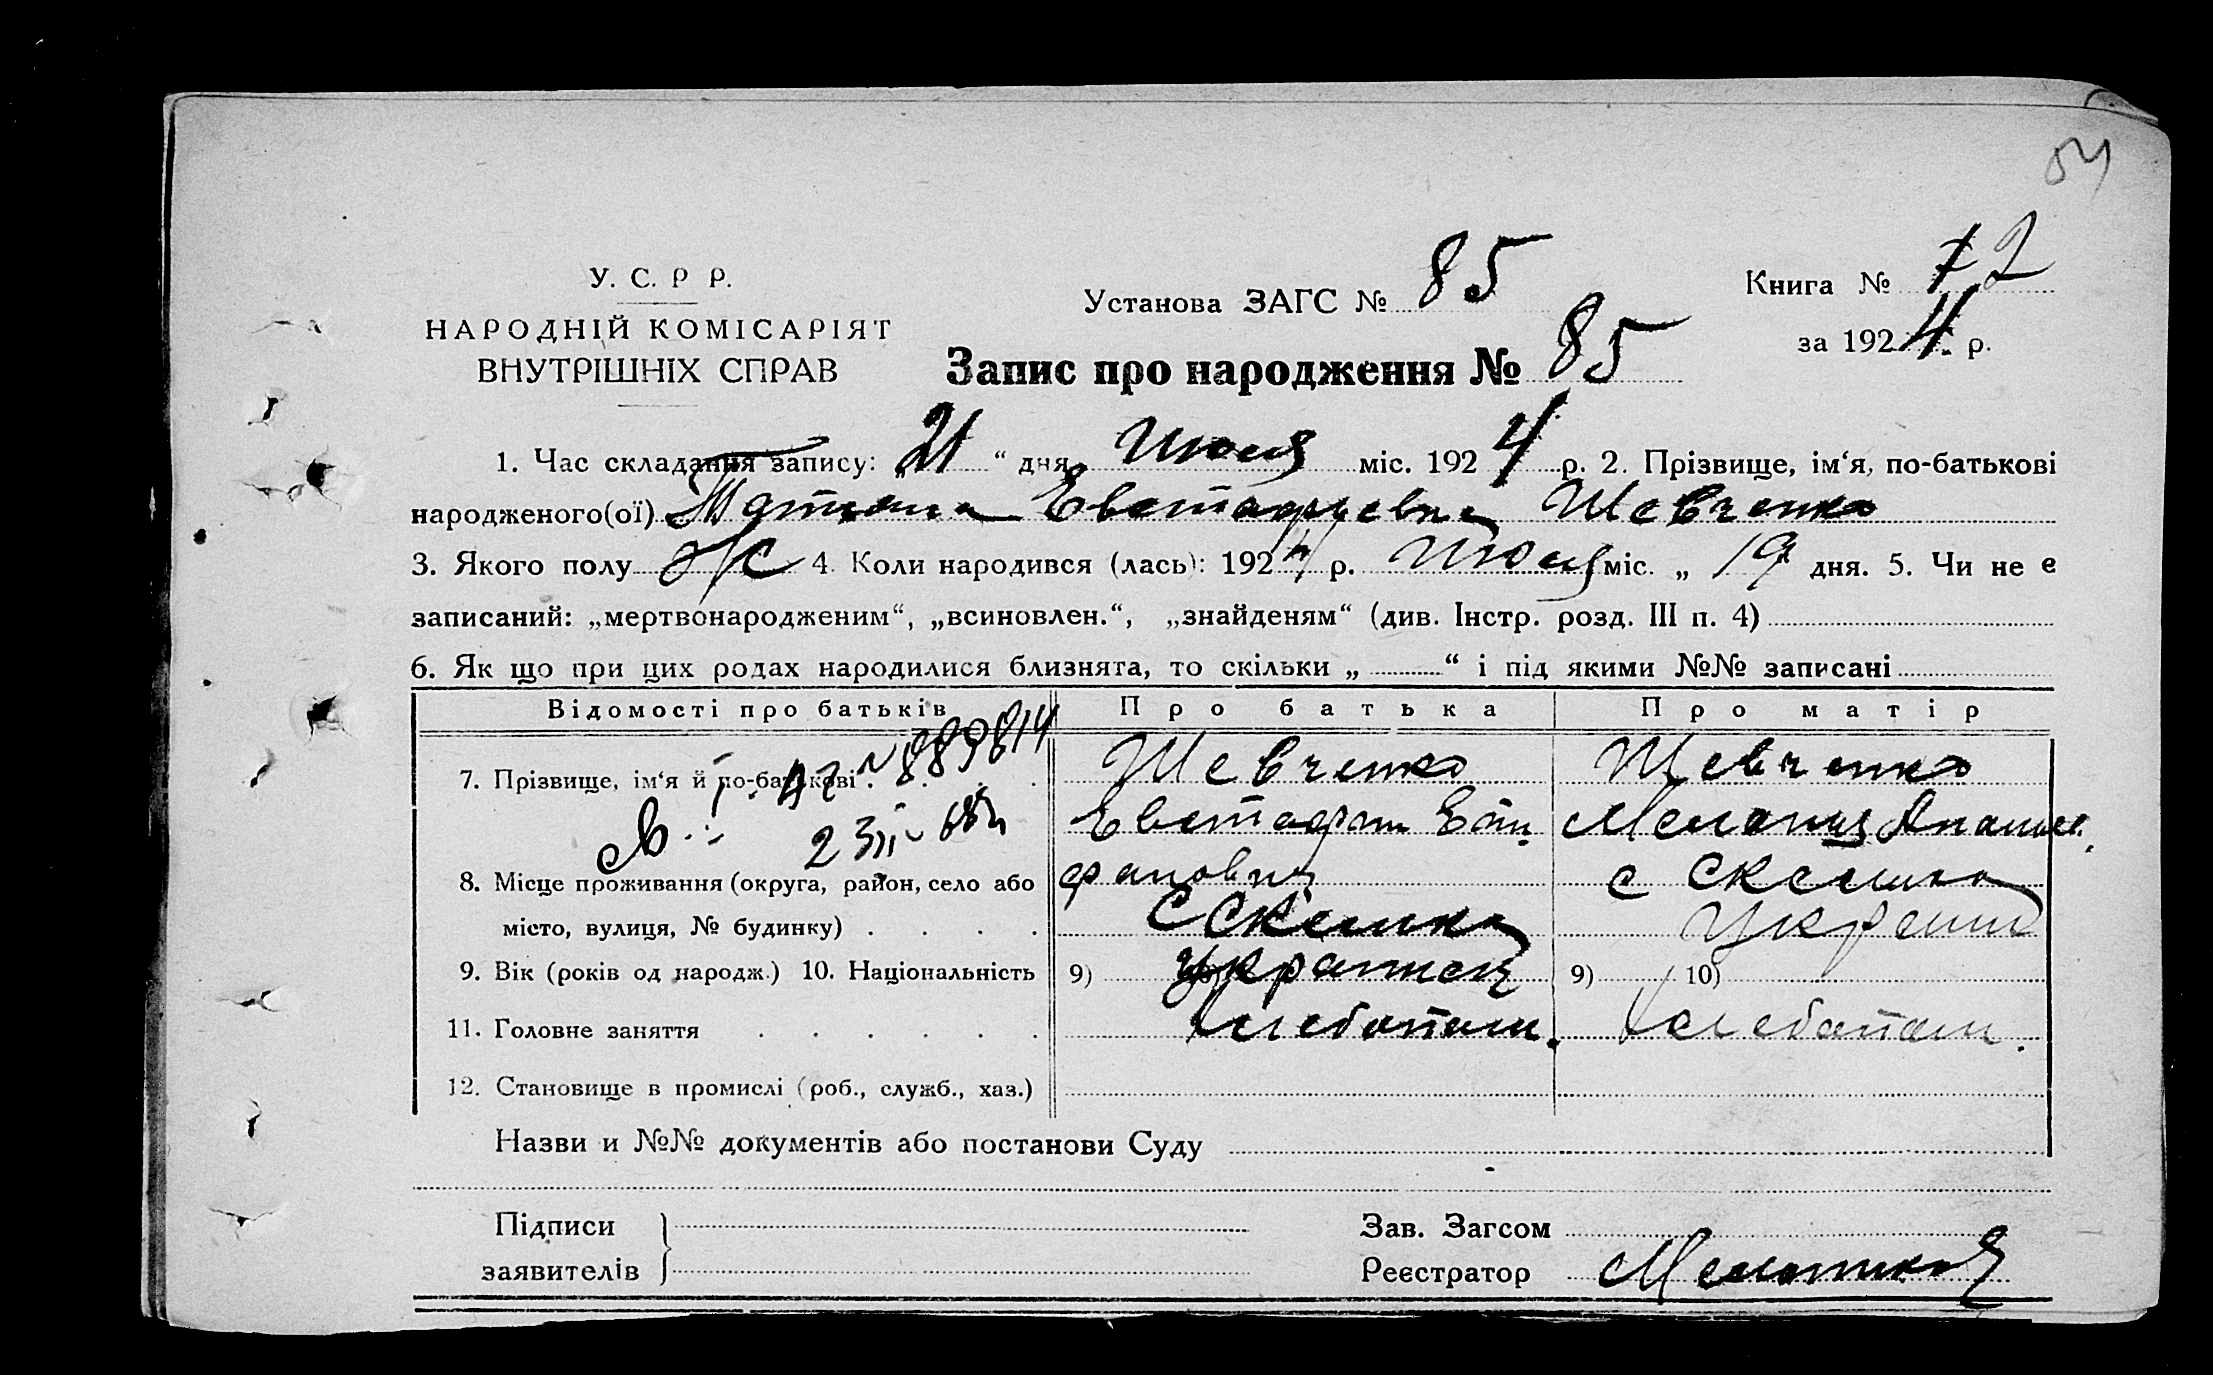 54
У. С. Р Р.
НАРОДНІЙ КОМІСАРІЯТ
ВНУТРІШНІХ СПРАВ
Установа ЗАГС № 85
Книга № 72
за 1924 р.
Запис про народження № 85
1. Час складання запису: „21“ дня Июля міс. 1924 р. 2. Прізвище, ім‘я, по-батькові
народженого(ої) Татиана Евстафьевна Шевченко
3. Якого полу Ж 4. Коли народився (лась): 1924 р. Июля міс. „ 19 дня. 5. Чи не є
записаний: „мертвонародженим“, „всиновлен.“, „знайденям“ (див. Інстр. розд. III п. 4)
6. Як що при цих родах народилися близнята, то скільки „ “ і під якими №№ записані
Відомості про батьків Про батька Про матір
7. Прізвище, ім‘я й по-батькові Шевченко Шевченко
889814
Евстафий Епи Мелания
фанович с
8. Місце проживання (округа, район, село або
місто, вулиця, № будинку) с
9. Вік (років од народж.) 10. Національність 9) Украинец 9) 10)
11. Головне заняття Хлебопаш. Хлебопаш.
12. Становище в промислі (роб., служб., хаз.)
Назви и №№ документів або постанови Суду
Підписи
заявителів
Зав. Загсом
Реєстратор